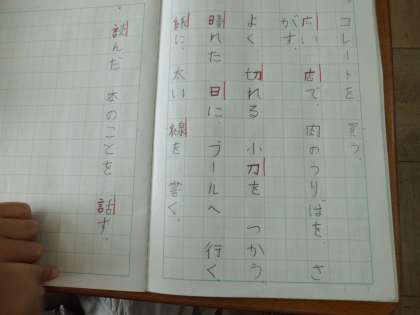 コレートを 買う。
広い 店で、肉のうりばを、さ
がす。
よく 切れる 小刀を つかう。
晴れた 日に、プールへ 行く。
太い 線を 書く。
読んだ 本のことを 話す。